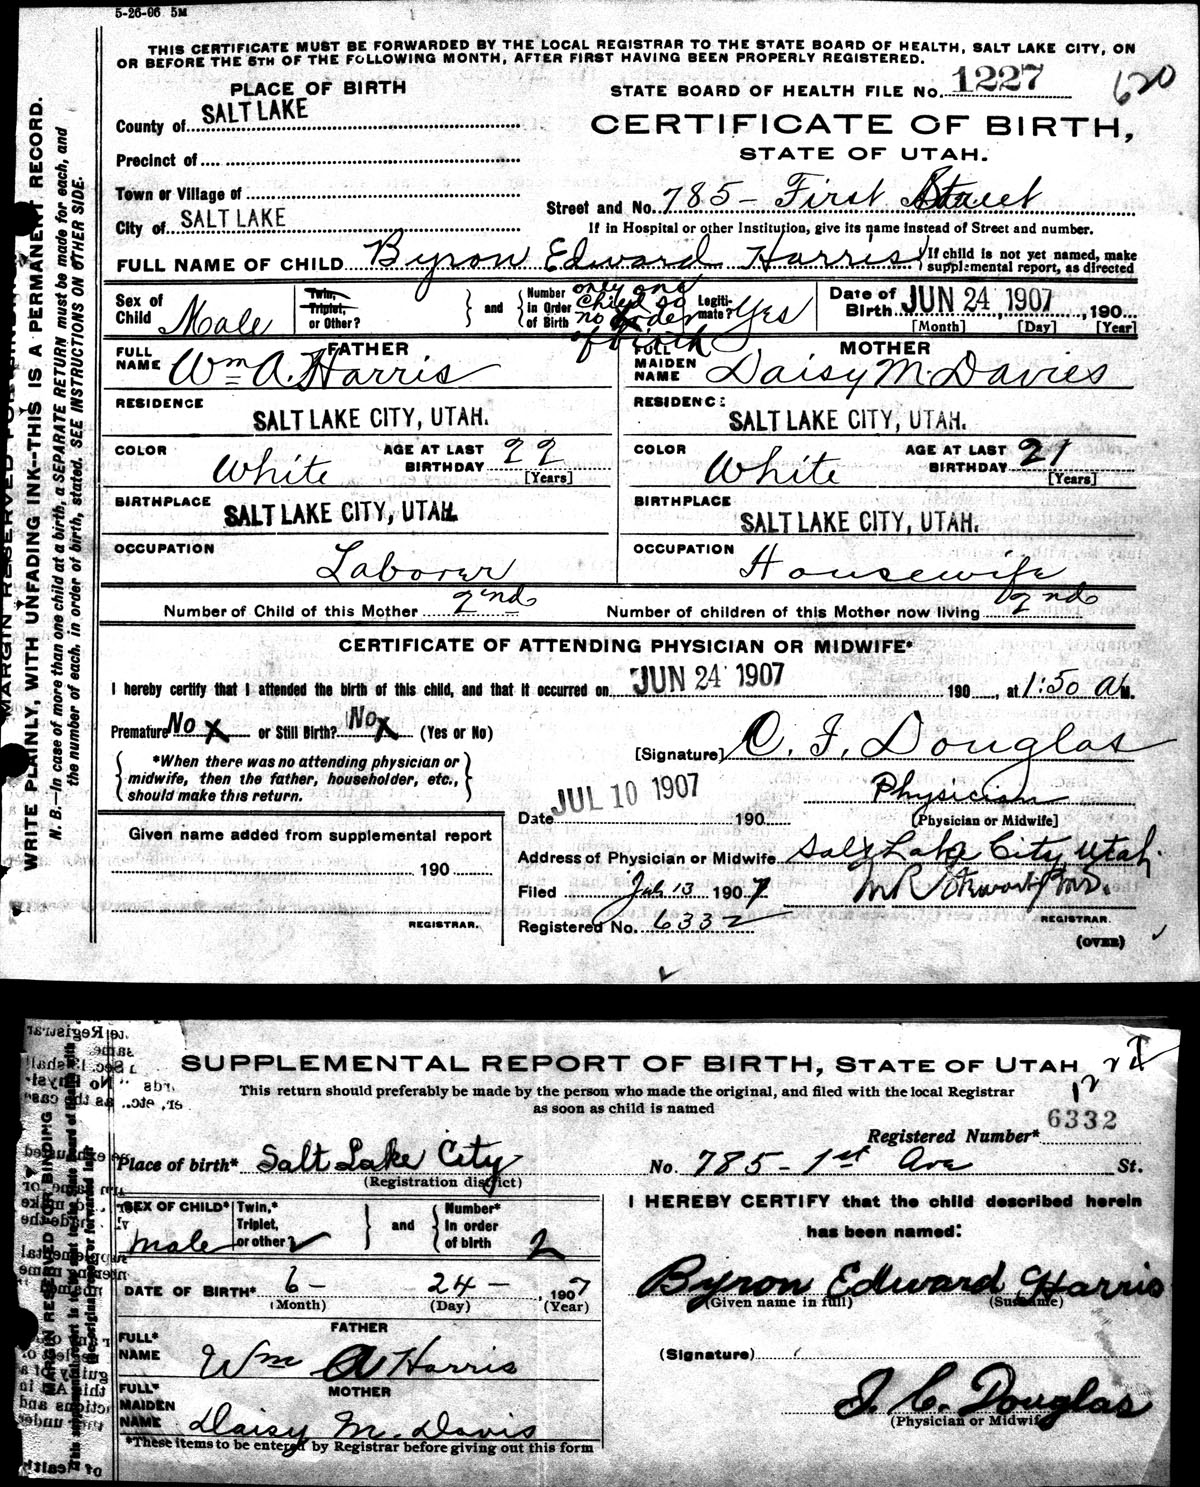 5-26-06 5M
THIS CERTIFICATE MUST BE FORWARDED BY THE LOCAL REGISTRAR TO THE STATE BOARD OF HEALTH, SALT LAKE CITY, ON
OR BEFORE THE 5TH OF THE FOLLOWING MONTH, AFTER FIRST HAVING BEEN PROPERLY REGISTERED.
PLACE OF BIRTH
STATE BOARD OF HEALTH FILE No. 1227 620
County of SALT LAKE
CERTIFICATE OF BIRTH,
Precinct of
STATE OF UTAH.
Town or Village of
Street and No. 785 - First Street
City of SALT LAKE
If in Hospital or other Institution, give its name instead of Street and number.
FULL NAME OF CHILD Byron Edward Harris
If child is not yet named, make
supplemental report, as directed
Sex of Child Male
Twin, Triplet, or Other?
and
Number in Order of Birth only one child so no order of birth
Legiti-mate? Yes
Date of Birth JUN 24 1907, 190
[Month] [Day] [Year]
FATHER
FULL NAME Wm A. Harris
MOTHER
FULL MAIDEN NAME Daisy M. Davies
RESIDENCE SALT LAKE CITY, UTAH.
RESIDENCE SALT LAKE CITY, UTAH.
COLOR White AGE AT LAST BIRTHDAY 22 [Years]
COLOR White AGE AT LAST BIRTHDAY 21 [Years]
BIRTHPLACE SALT LAKE CITY, UTAH.
BIRTHPLACE SALT LAKE CITY, UTAH.
OCCUPATION Laborer
OCCUPATION Housewife
Number of Child of this Mother 2nd Number of children of this Mother now living 2nd
CERTIFICATE OF ATTENDING PHYSICIAN OR MIDWIFE*
I hereby certify that I attended the birth of this child, and that it occurred on JUN 24 1907 190, at 1:50 a M.
Premature No X or Still Birth? No X (Yes or No)
[Signature] C. F. Douglas
*When there was no attending physician or
midwife, then the father, householder, etc.,
should make this return.
Physician
[Physician or Midwife]
Date JUL 10 1907 190
Given name added from supplemental report
190
REGISTRAR.
Address of Physician or Midwife Salt Lake City, Utah.
Filed July 13 1907
REGISTRAR.
Registered No. 6332
(OVER)
MARGIN RESERVED FOR BINDING
WRITE PLAINLY, WITH UNFADING INK--THIS IS A PERMANENT RECORD.
N. B.—In case of more than one child at a birth, a SEPARATE RETURN must be made for each, and
the number of each, in order of birth, stated. SEE INSTRUCTIONS ON OTHER SIDE.
SUPPLEMENTAL REPORT OF BIRTH, STATE OF UTAH
This return should preferably be made by the person who made the original, and filed with the local Registrar
as soon as child is named
Registered Number* 6332
Place of birth* Salt Lake City
(Registration district)
No. 785 - 1st Ave St.
SEX OF CHILD* Male
Twin,* Triplet, or other
and
Number* in order of birth 2
I HEREBY CERTIFY that the child described herein
has been named:
DATE OF BIRTH* 6 - 24 - , 1907
(Month) (Day) (Year)
Byron Edward Harris
(Given name in full) (Surname)
FATHER
FULL* NAME Wm A Harris
(Signature)
MOTHER
FULL* MAIDEN NAME Daisy M. Davis
J. C. Douglas
(Physician or Midwife)
*These items to be entered by Registrar before giving out this form
MARGIN RESERVED FOR BINDING